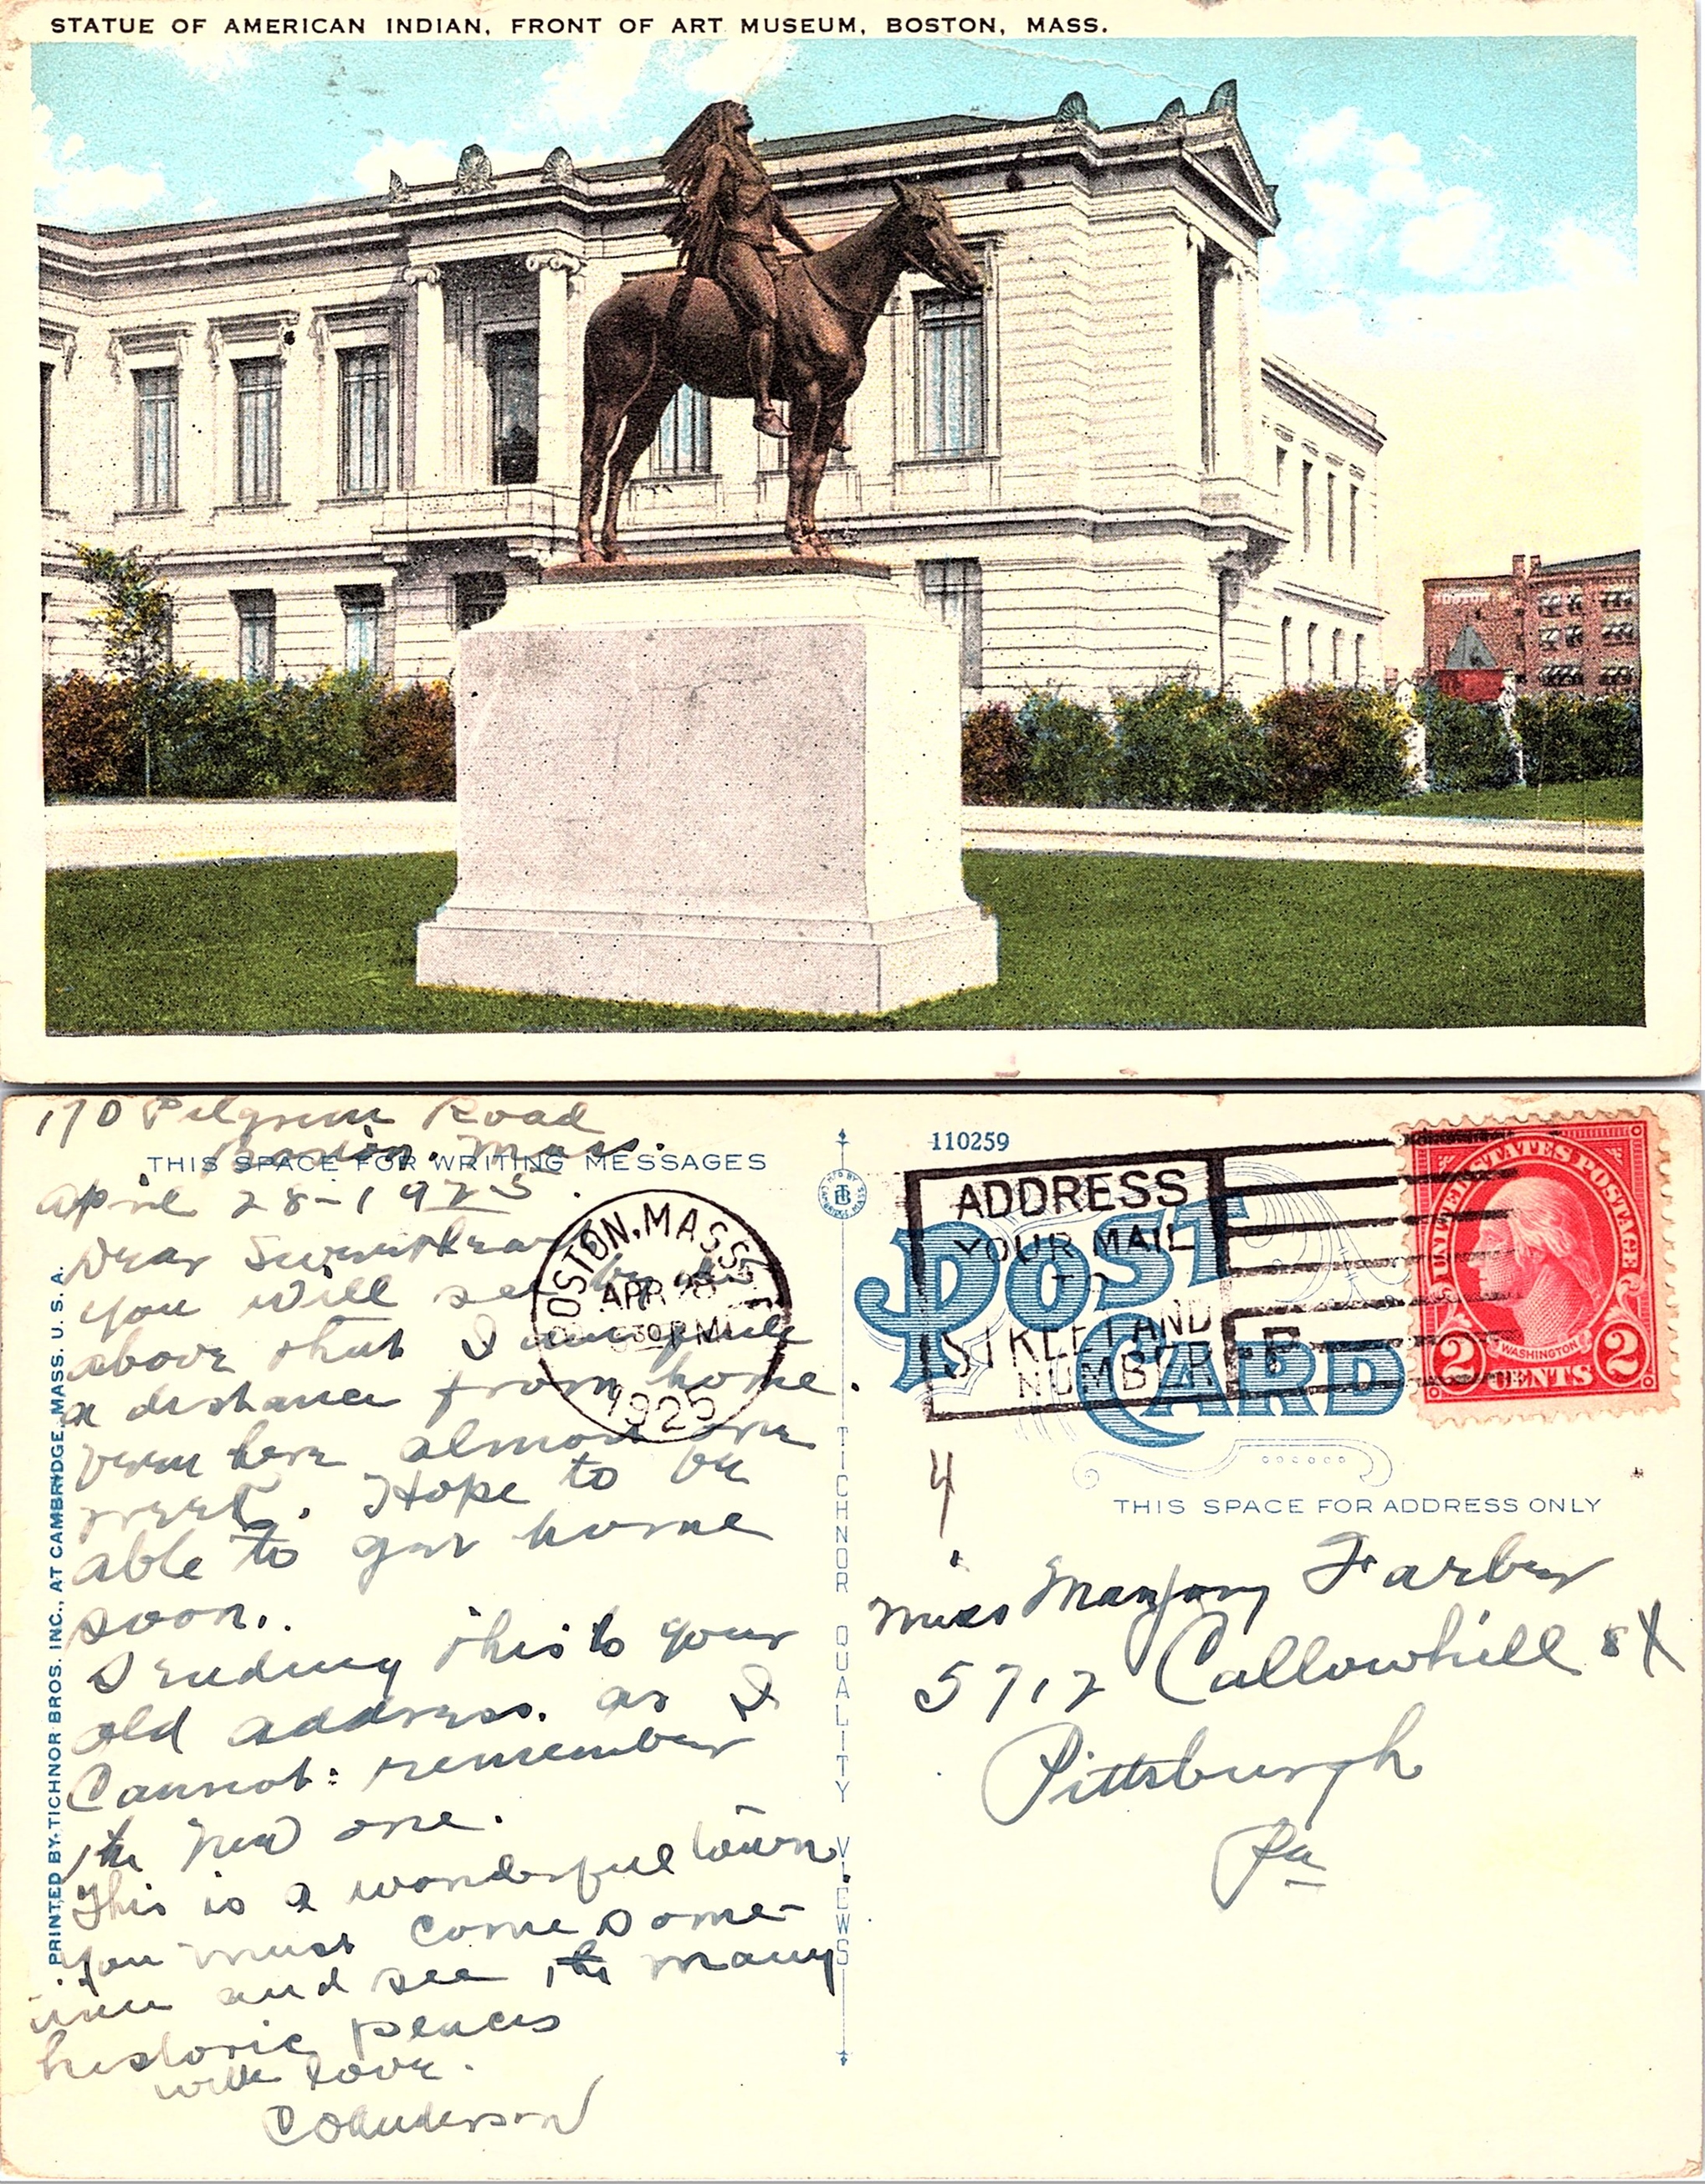 STATUE OF AMERICAN INDIAN, FRONT OF ART MUSEUM, BOSTON, MASS.
BOSTON
170 Pilgrim Road
Boston. Mass.
THIS SPACE FOR WRITING MESSAGES
April 28-1925.
Dear Sweetheart
You will see by the
above that I am quite
a distance from home.
been here almost one
week. Hope to be
able to get home
soon.
Sending this to your
old address. as I
Cannot remember
the new one.
This is a wonderful town.
You must come some-
time and see the many
historic places
with love.
CO Anderson
PRINTED BY TICHNOR BROS. INC., AT CAMBRIDGE, MASS. U. S. A.
BOSTON, MASS.
APR 28
30 PM
1925
TICHNOR QUALITY VIEWS
110259
ADDRESS
YOUR MAIL
TO
STREET AND
NUMBER
POST
CARD
UNITED STATES POSTAGE
WASHINGTON
2 CENTS 2
4
THIS SPACE FOR ADDRESS ONLY
Miss Marjory Farber
5712 Callowhill St
Pittsburgh
Pa